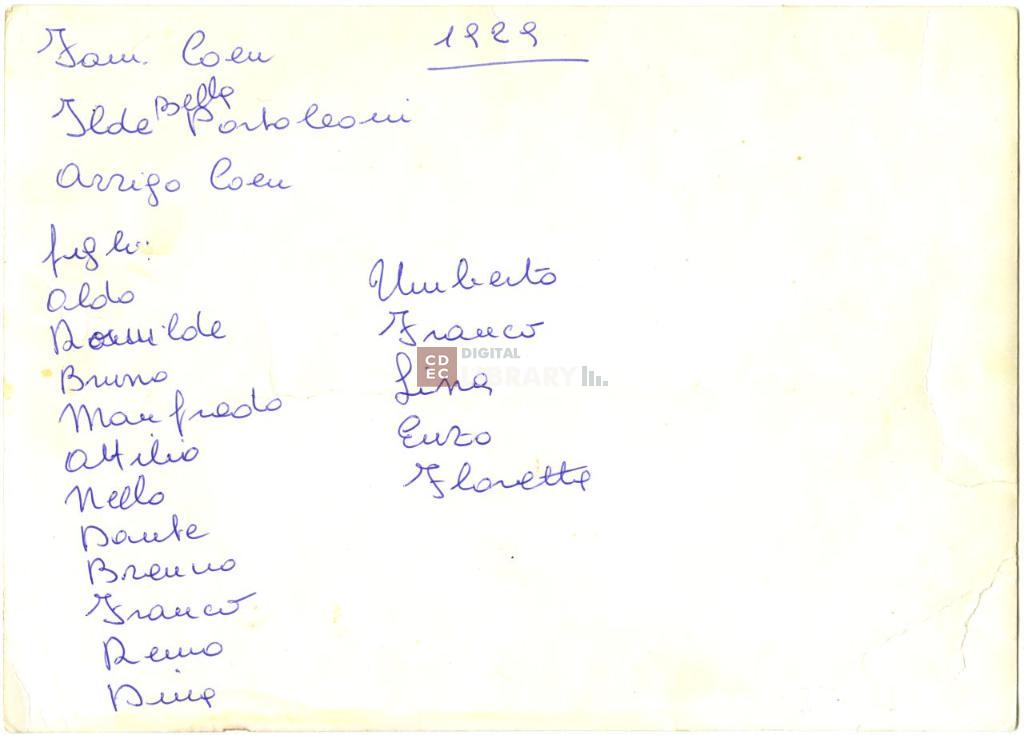 Fam. Coen
1929
Ilde Bella Portaleoni
Arrigo Coen
figli:
Aldo
Romilde
Bruno
Manfredo
Attilio
Nello
Dante
Brenno
Franco
Remo
Dina
Umberto
Franco
Lina
Enzo
Floretta
CDEC DIGITAL
LIBRARY